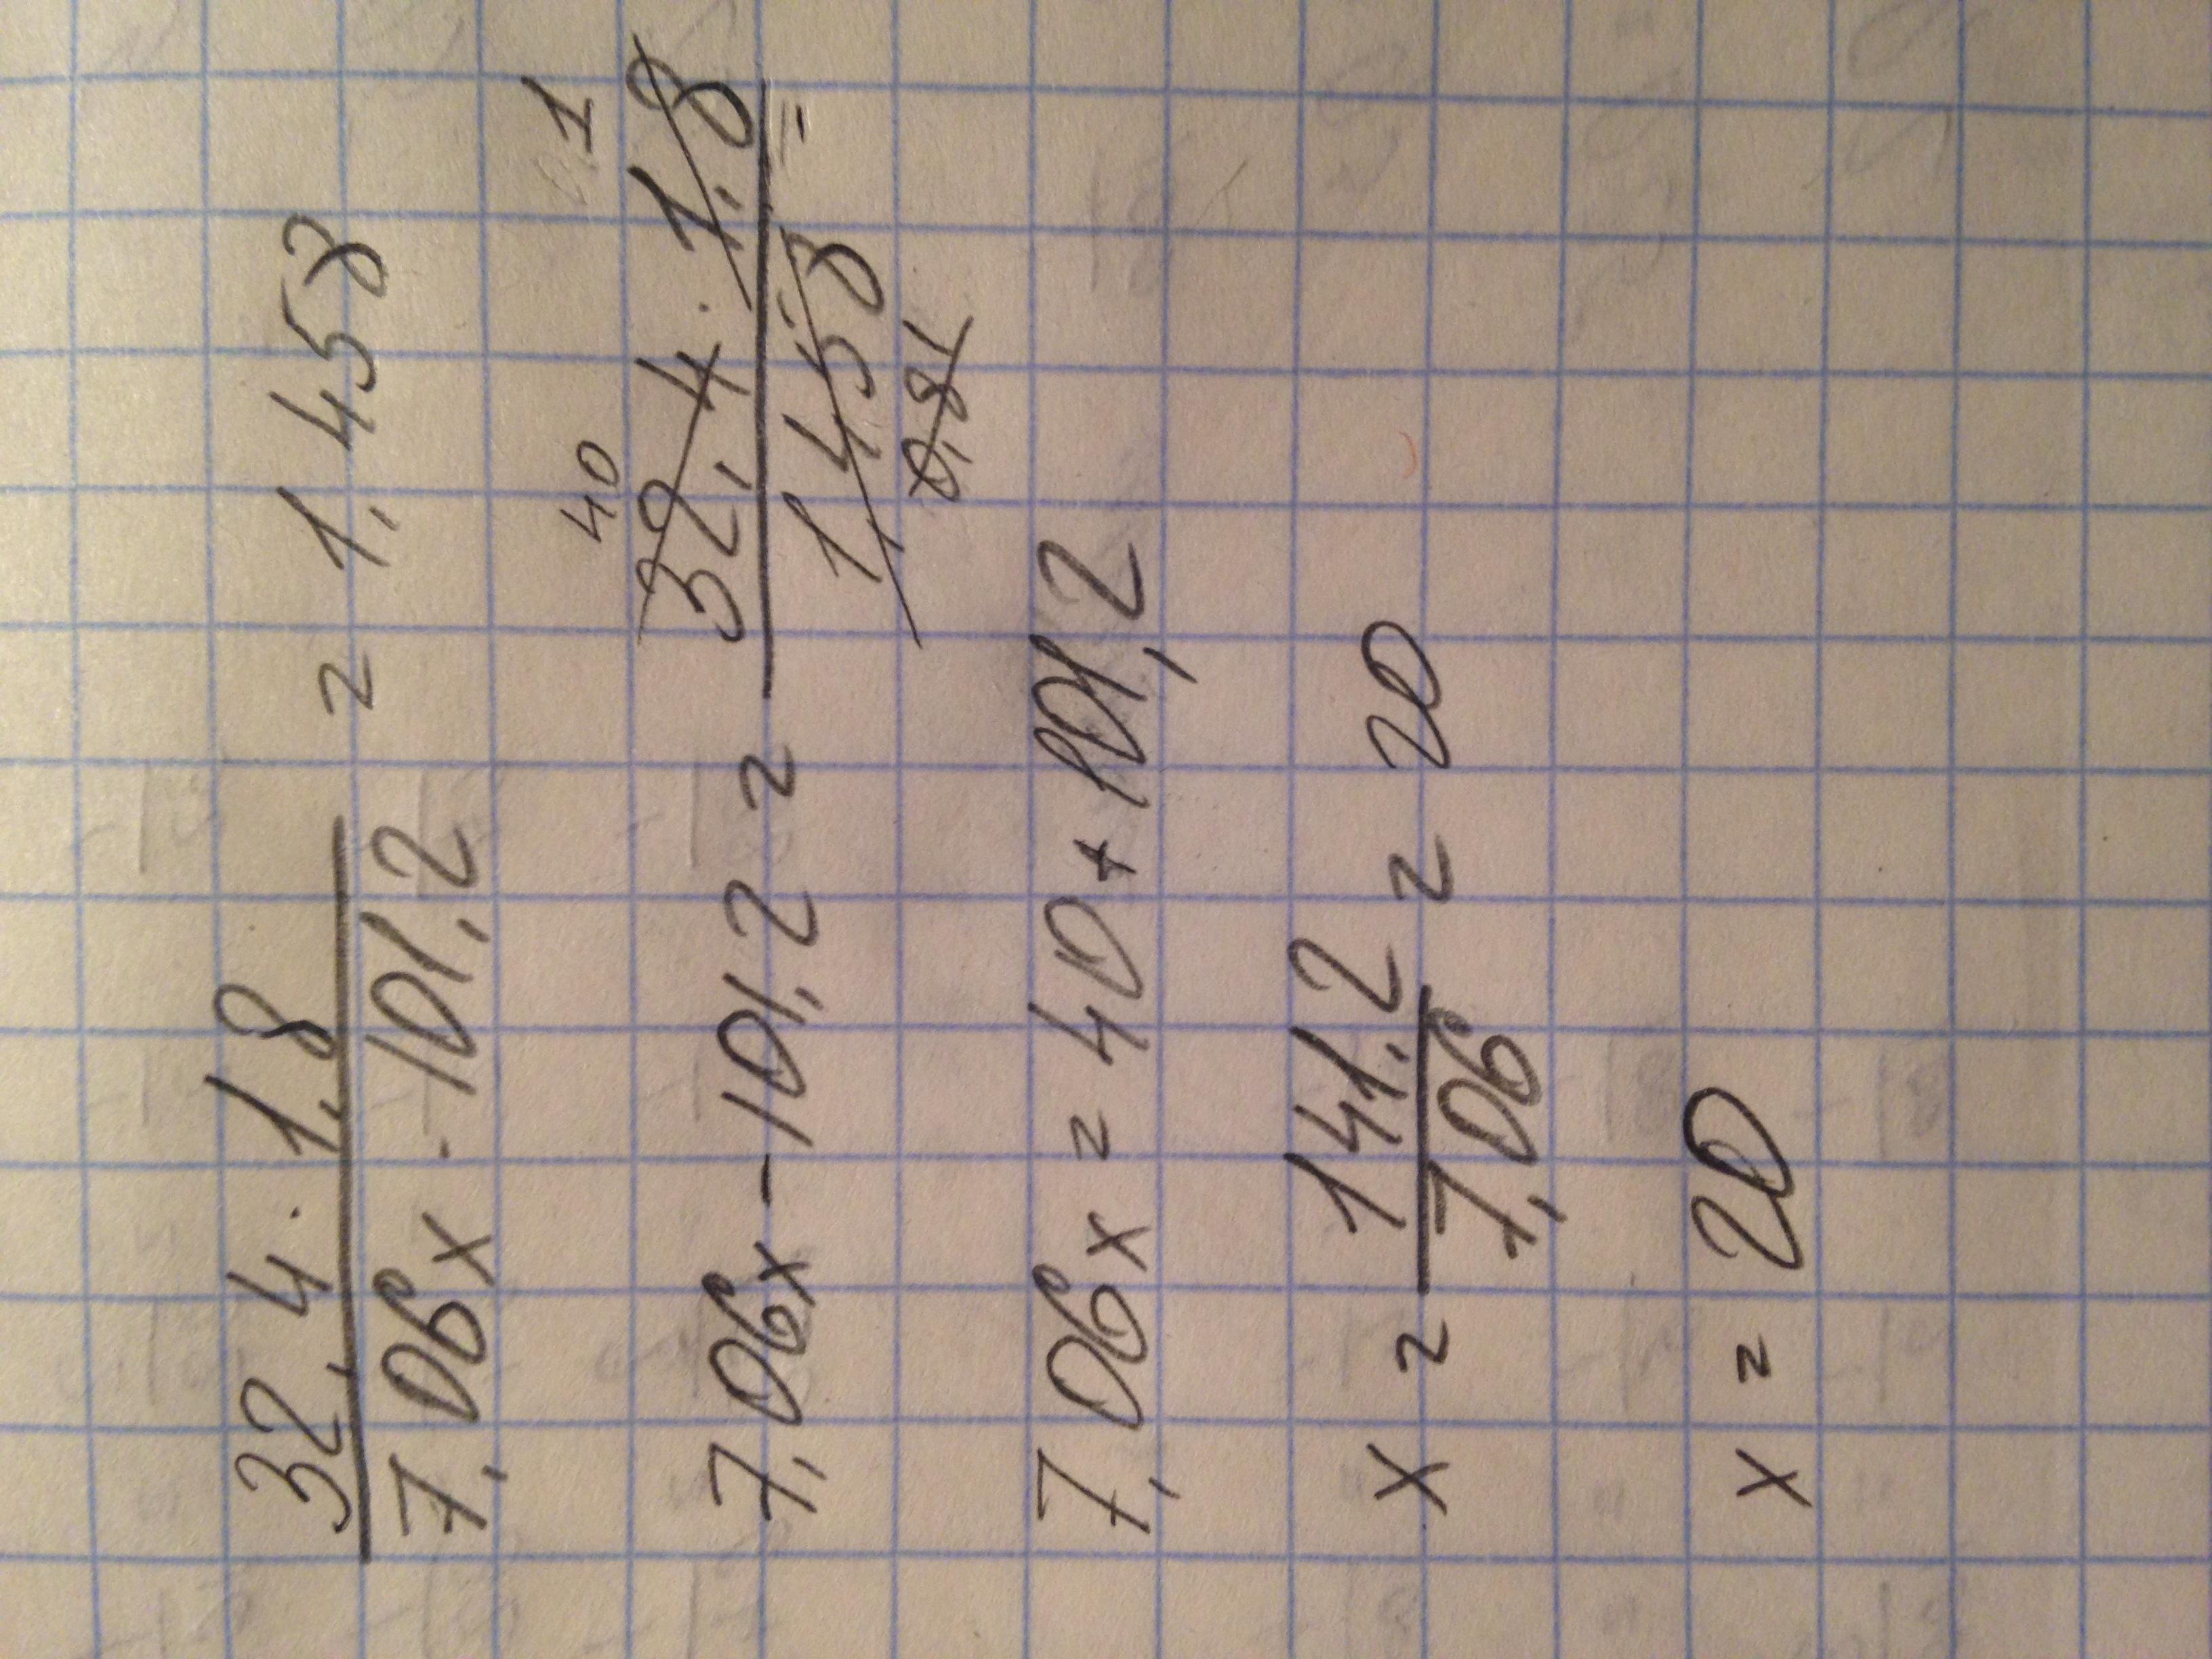 32,4 · 1,8 = 1,458
7,06x - 101,2
40 1
7,06x - 101,2 = 32,4 · 1,8 =
1,458
0,81
7,06x = 40 + 101,2
x = 141,2 = 20
7,06
x = 20